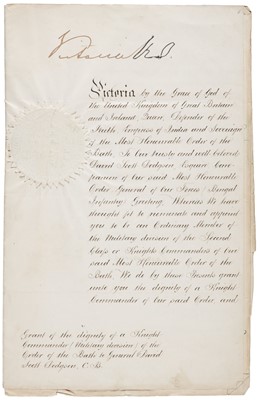 Victoria R.I.
Victoria by the Grace of God of
the United Kingdom of Great Britain
and Ireland Queen, Defender of the
Faith Empress of India and Sovereign
of the Most Honorable Order of the
Bath To Our trusty and well beloved
David Scott Dodgson Esquire Com-
panion of Our said Most Honorable
Order General of Our Forces Bengal
Infantry Greeting Whereas We have
thought fit to nominate and appoint
you to be an Ordinary Member of
the Military division of the Second
Class or Knights Commanders of Our
said Most Honorable Order of the
Bath We do by these Presents grant
unto you the dignity of a Knight
Commander of Our said Order and
Grant of the dignity of a Knight
Commander (Military division) of the
Order of the Bath to General David
Scott Dodgson, C.B.